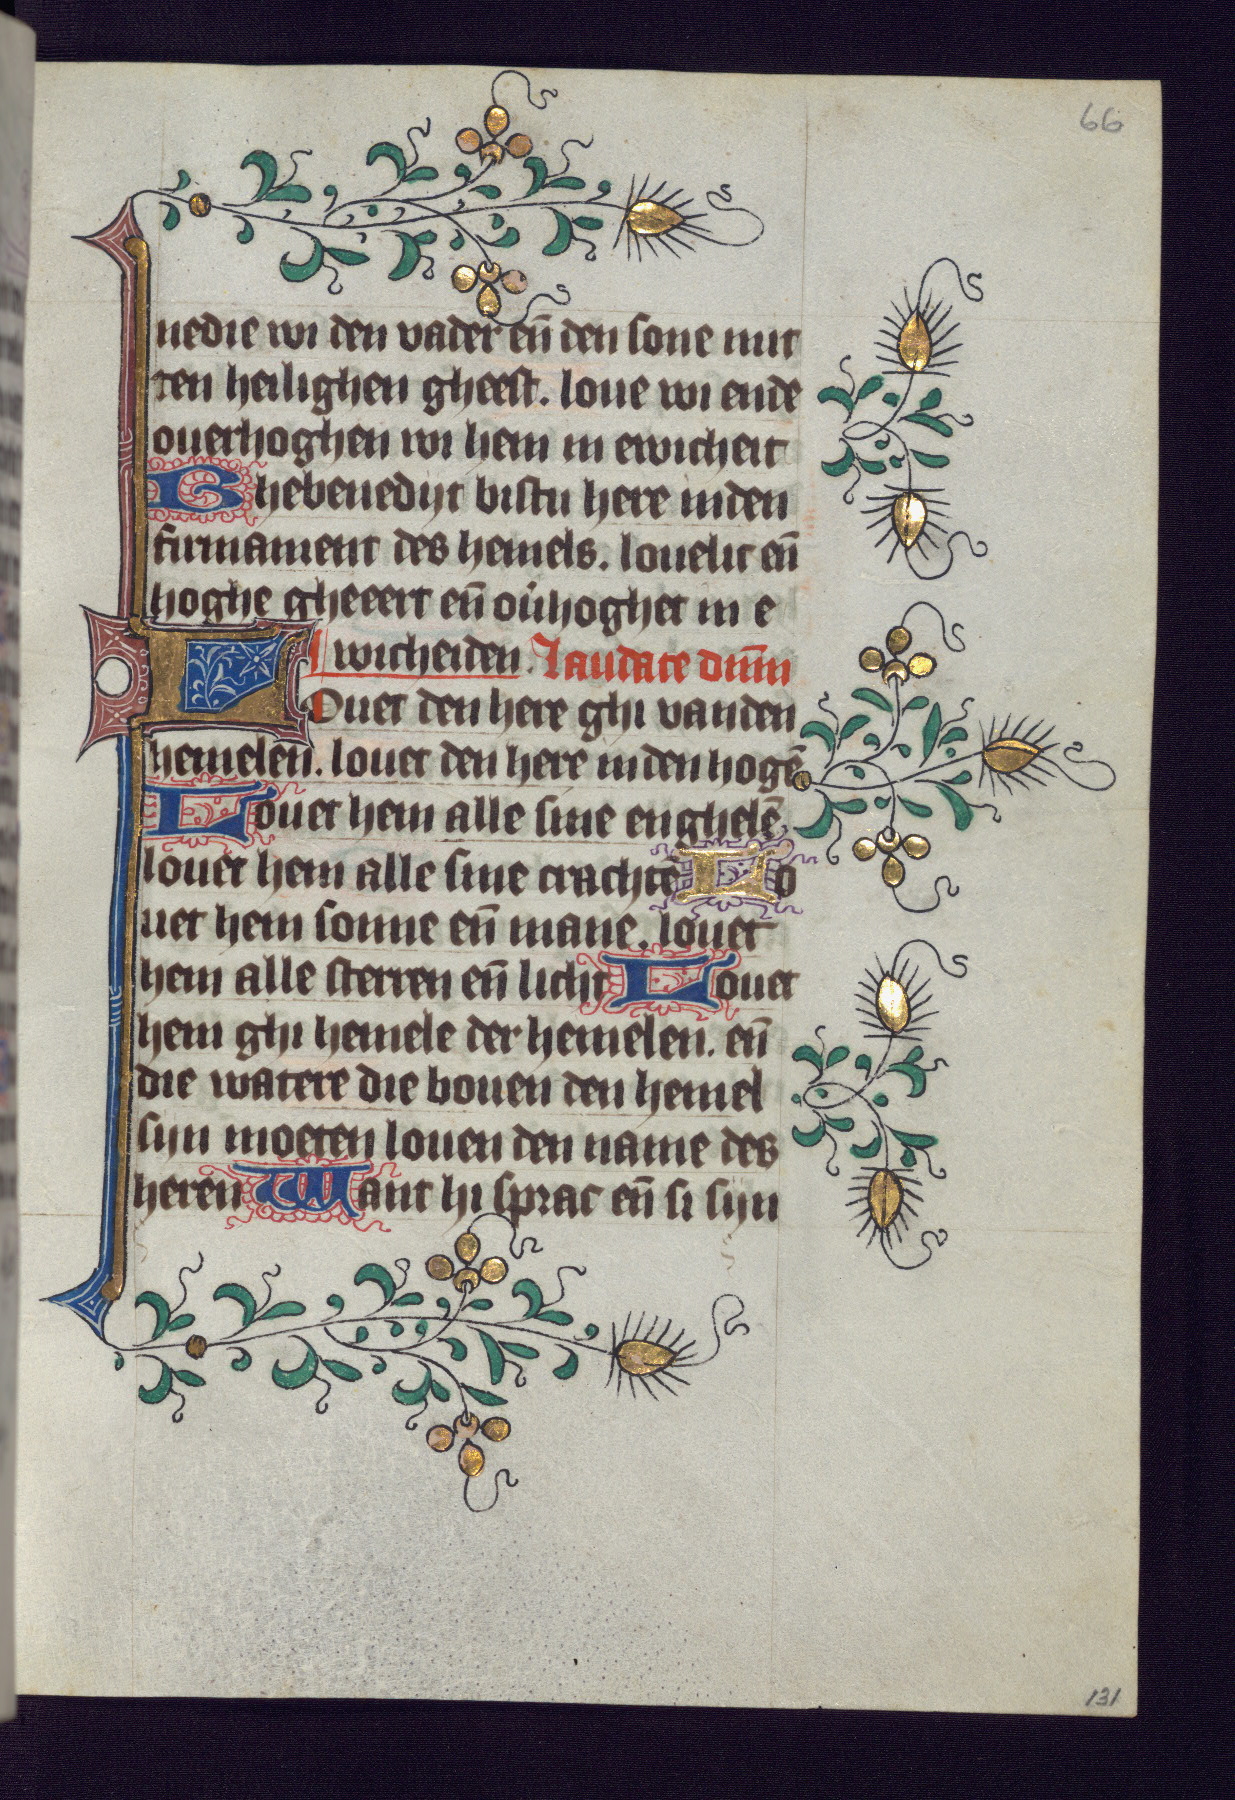 66
nedie wi den vader en̄ den sone mit
ten heilighen gheest. loue wi ende
ouerhoghen wi hem in ewicheit
Ghebenedijt bistu here inden
firmament des hemels. louelic en̄
hoghe gheeert en̄ ou̇hoghet in e
wicheiden. Laudate dn̄m
LOuet den here ghi vanden
hemelen. louet den here inden hogē
Louet hem alle sine enghelē
louet hem alle sine crachtē Lo
uet hem sonne en̄ mane. louet
hem alle sterren en̄ licht Louet
hem ghi hemele der hemelen. en̄
die watere die bouen den hemel
sijn moeten louen den name des
heren Want hi sprac en̄ si sijn
131